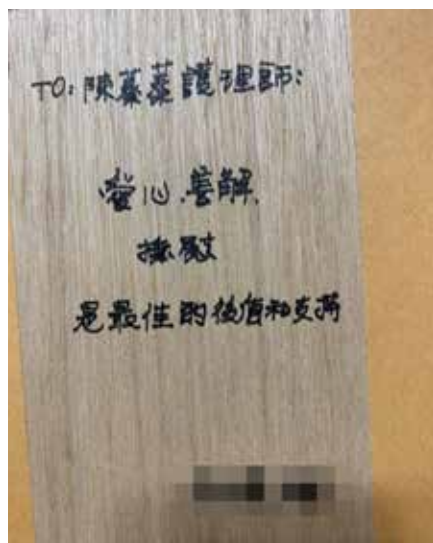 TO: 陳蓁蓁護理師:
窩心.善解.
撫慰
是最佳的後盾和支持